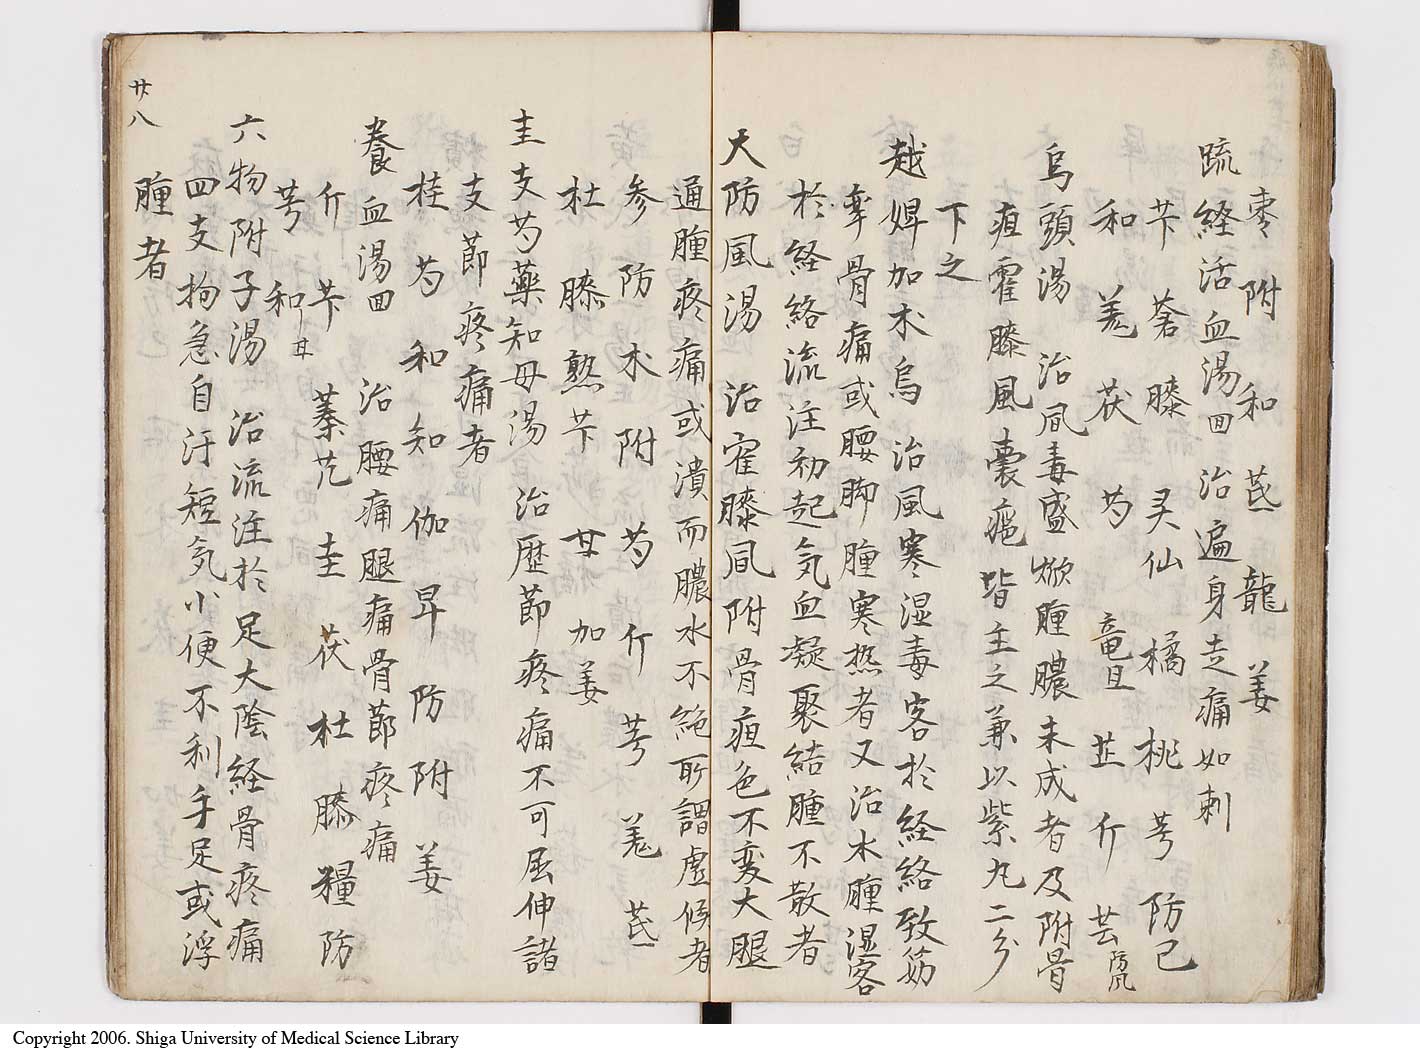 棗 附 和 芪 龍 姜
疏経活血湯回 治遍身走痛如刺
芐 蒼 膝 灵仙 橘 桃 芎 防已
和 羌 茯 芍 竜旦 芷 亇 芸 防凧
烏頭湯 治凨毒盛焮腫膿未成者及附骨
疽霍膝風嚢癰皆主之兼以紫丸二分
下之
越婢加朮烏 治風寒湿毒客於経絡致筋
挛骨痛或腰脚腫寒热者又治水腫湿客
於経絡流注初起気血凝聚結腫不散者
大防風湯 治寉膝凨附骨疽色不変大腿
通腫疼痛或潰而膿水不絶所謂虚候者
参 防 朮 附 芍 亇 芎 羌 芪
杜 膝 熟芐 甘 加姜
圭支芍藥知母湯 治歴節疼痛不可屈伸諸
支節疼痛者
桂 芍 和 知 伽 早 防 附 姜
養血湯回 治腰痛腿痛骨節疼痛
亇 芐 蓁艽 圭 茯 杜 膝 糧 防
芎 和 甘
六物附子湯 治流注於足大陰経骨疼痛
四支拘急自汗短気小便不利手足或浮
腫者
廿八
Copyright 2006. Shiga University of Medical Science Library